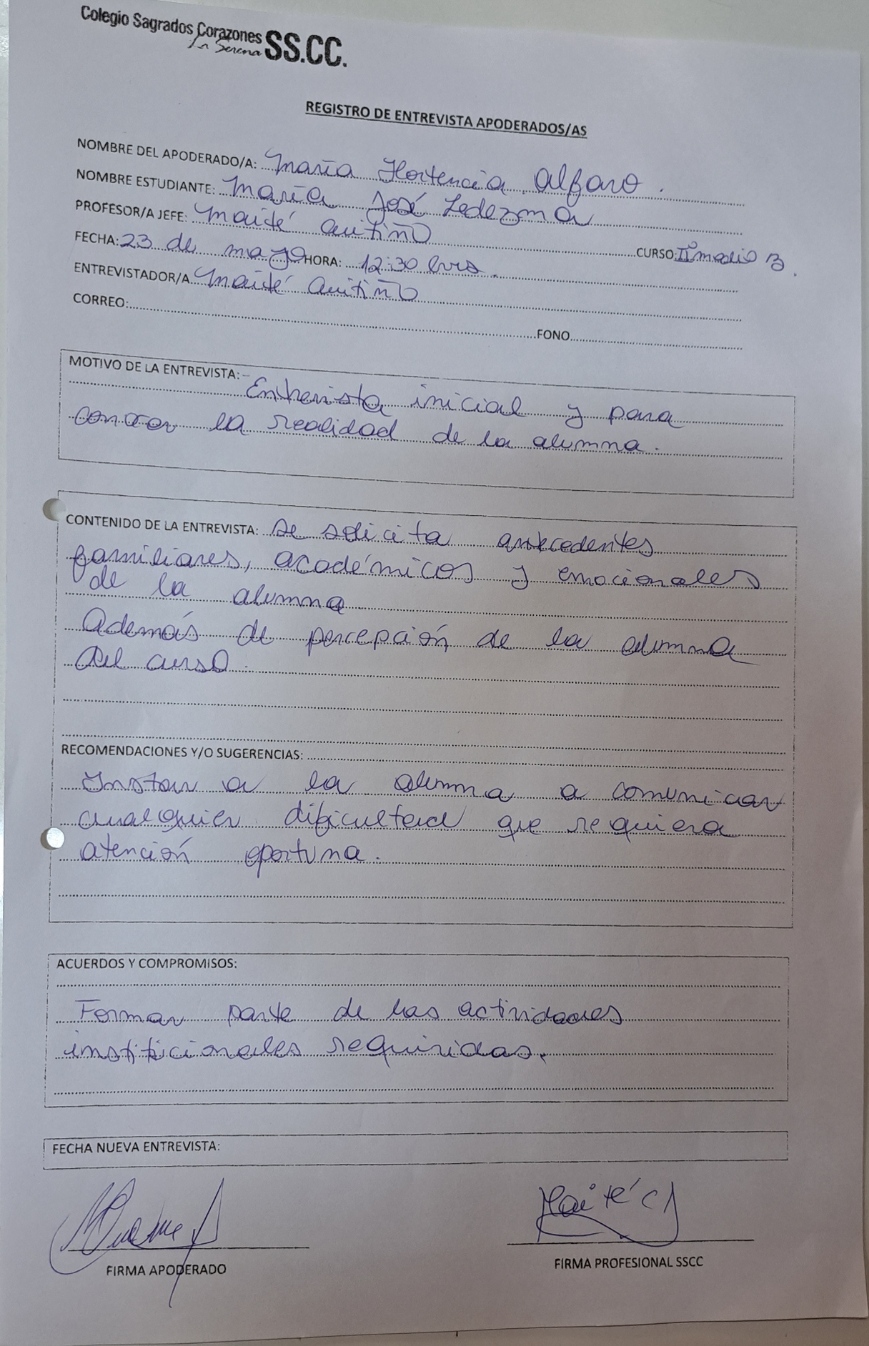 Colegio Sagrados Corazones
La Serena SS.CC.
REGISTRO DE ENTREVISTA APODERADOS/AS
NOMBRE DEL APODERADO/A: María Hortencia Alfaro.
NOMBRE ESTUDIANTE: María José Ledezma
PROFESOR/A JEFE: Maité Cuitiño CURSO II medio B.
FECHA: 23 de mayo HORA: 12:30 hrs.
ENTREVISTADOR/A Maité Cuitiño
CORREO: FONO
MOTIVO DE LA ENTREVISTA: Entrevista inicial y para
conocer la realidad de la alumna.
CONTENIDO DE LA ENTREVISTA: Se solicita antecedentes
familiares, académicos y emocionales
de la alumna
Además de percepción de la alumna
del curso.
RECOMENDACIONES Y/O SUGERENCIAS:
Instar a la alumna a comunicar
cualquier dificultad que requiera
atención oportuna.
ACUERDOS Y COMPROMISOS:
Formar parte de las actividades
institicionales requiridas.
FECHA NUEVA ENTREVISTA:
Maité C
FIRMA APODERADO
FIRMA PROFESIONAL SSCC